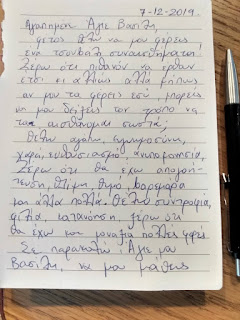 7-12-2019
Αγαπημένε Άγιε Βασίλη,
φέτος θέλω να μου φέρεις
ένα τσουβάλι συναισθήματα!
Ξέρω ότι πιθανόν να έρθουν
έτσι κι αλλιώς αλλά μήπως
αν μου τα φέρεις εσύ, μπορείς
να μου δείξεις τον τρόπο να
τα αισθάνομαι σωστά;
Θέλω αγάπη, εμπιστοσύνη,
χαρά, ενθουσιασμό, ανυπομονησία,
Ξέρω ότι θα έχω απογοή-
τευση, θλίψη, θυμό, βαρεμάρα
και άλλα πολλά. Θέλω συντροφιά,
φιλία, κατανόηση, ξέρω ότι
θα έχω και μοναξιά πολλές φορές.
Σε παρακαλώ Άγιε μου
Βασίλη, να μου μάθεις